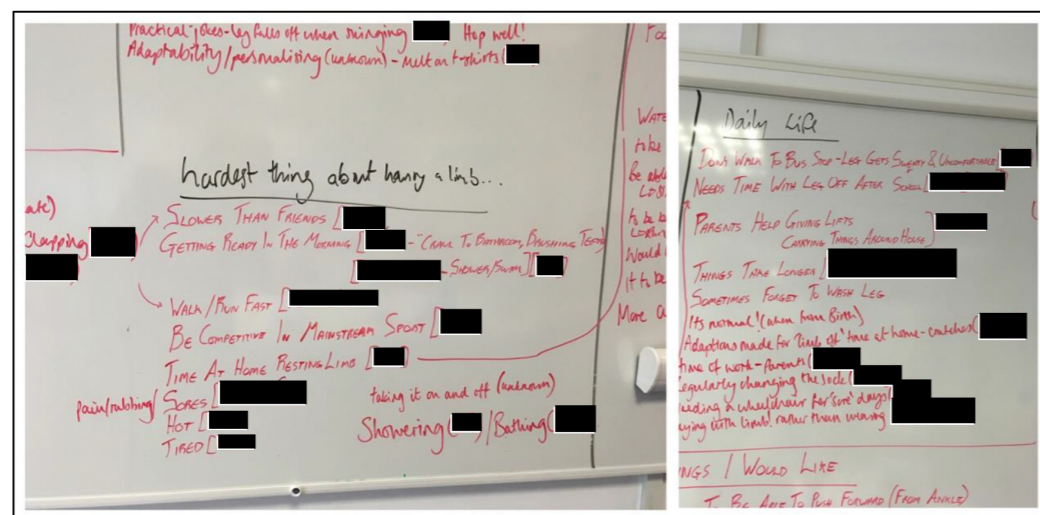 Practical-jokes-leg falls off when swinging Hop well!
Adaptability/personalising (unknown) - melt on t-shirts (
hardest thing about having a limb...
ate)
Clapping
SLOWER THAN FRIENDS [
GETTING READY IN THE MORNING [ - "CRAWL TO BATHROOM, BRUSHING TEETH)
[ - SHOWER/SWIM] [
WALK/RUN FAST [
BE COMPETITIVE IN MAINSTREAM SPORT [
TIME AT HOME RESTING LIMB [
pain/rubbing/ SORES [
HOT [
TIRED [
taking it on and off (unknown)
Showering ( )/Bathing (
Foo
WATE
to be
be able
to be
Would
it to be
More
Daily Life
DON'T WALK TO BUS STOP - LEG GETS SWEATY & UNCOMFORTABLE
NEEDS TIME WITH LEG OFF AFTER SCHOOL [
PARENTS HELP GIVING LIFTS
CARRYING THINGS AROUND HOUSE]
THINGS TAKE LONGER [
SOMETIMES FORGET TO WASH LEG
Its normal! (when from Birth)
Adaptions made for 'limb off' time at home - crutches (
time of work - parents (
Regularly changing the sock (
needing a wheelchair for 'sore' days (
aying with limb! rather than wearing
NGS I WOULD LIKE
TO BE ABLE TO PUSH FORWARD (FROM ANKLE)